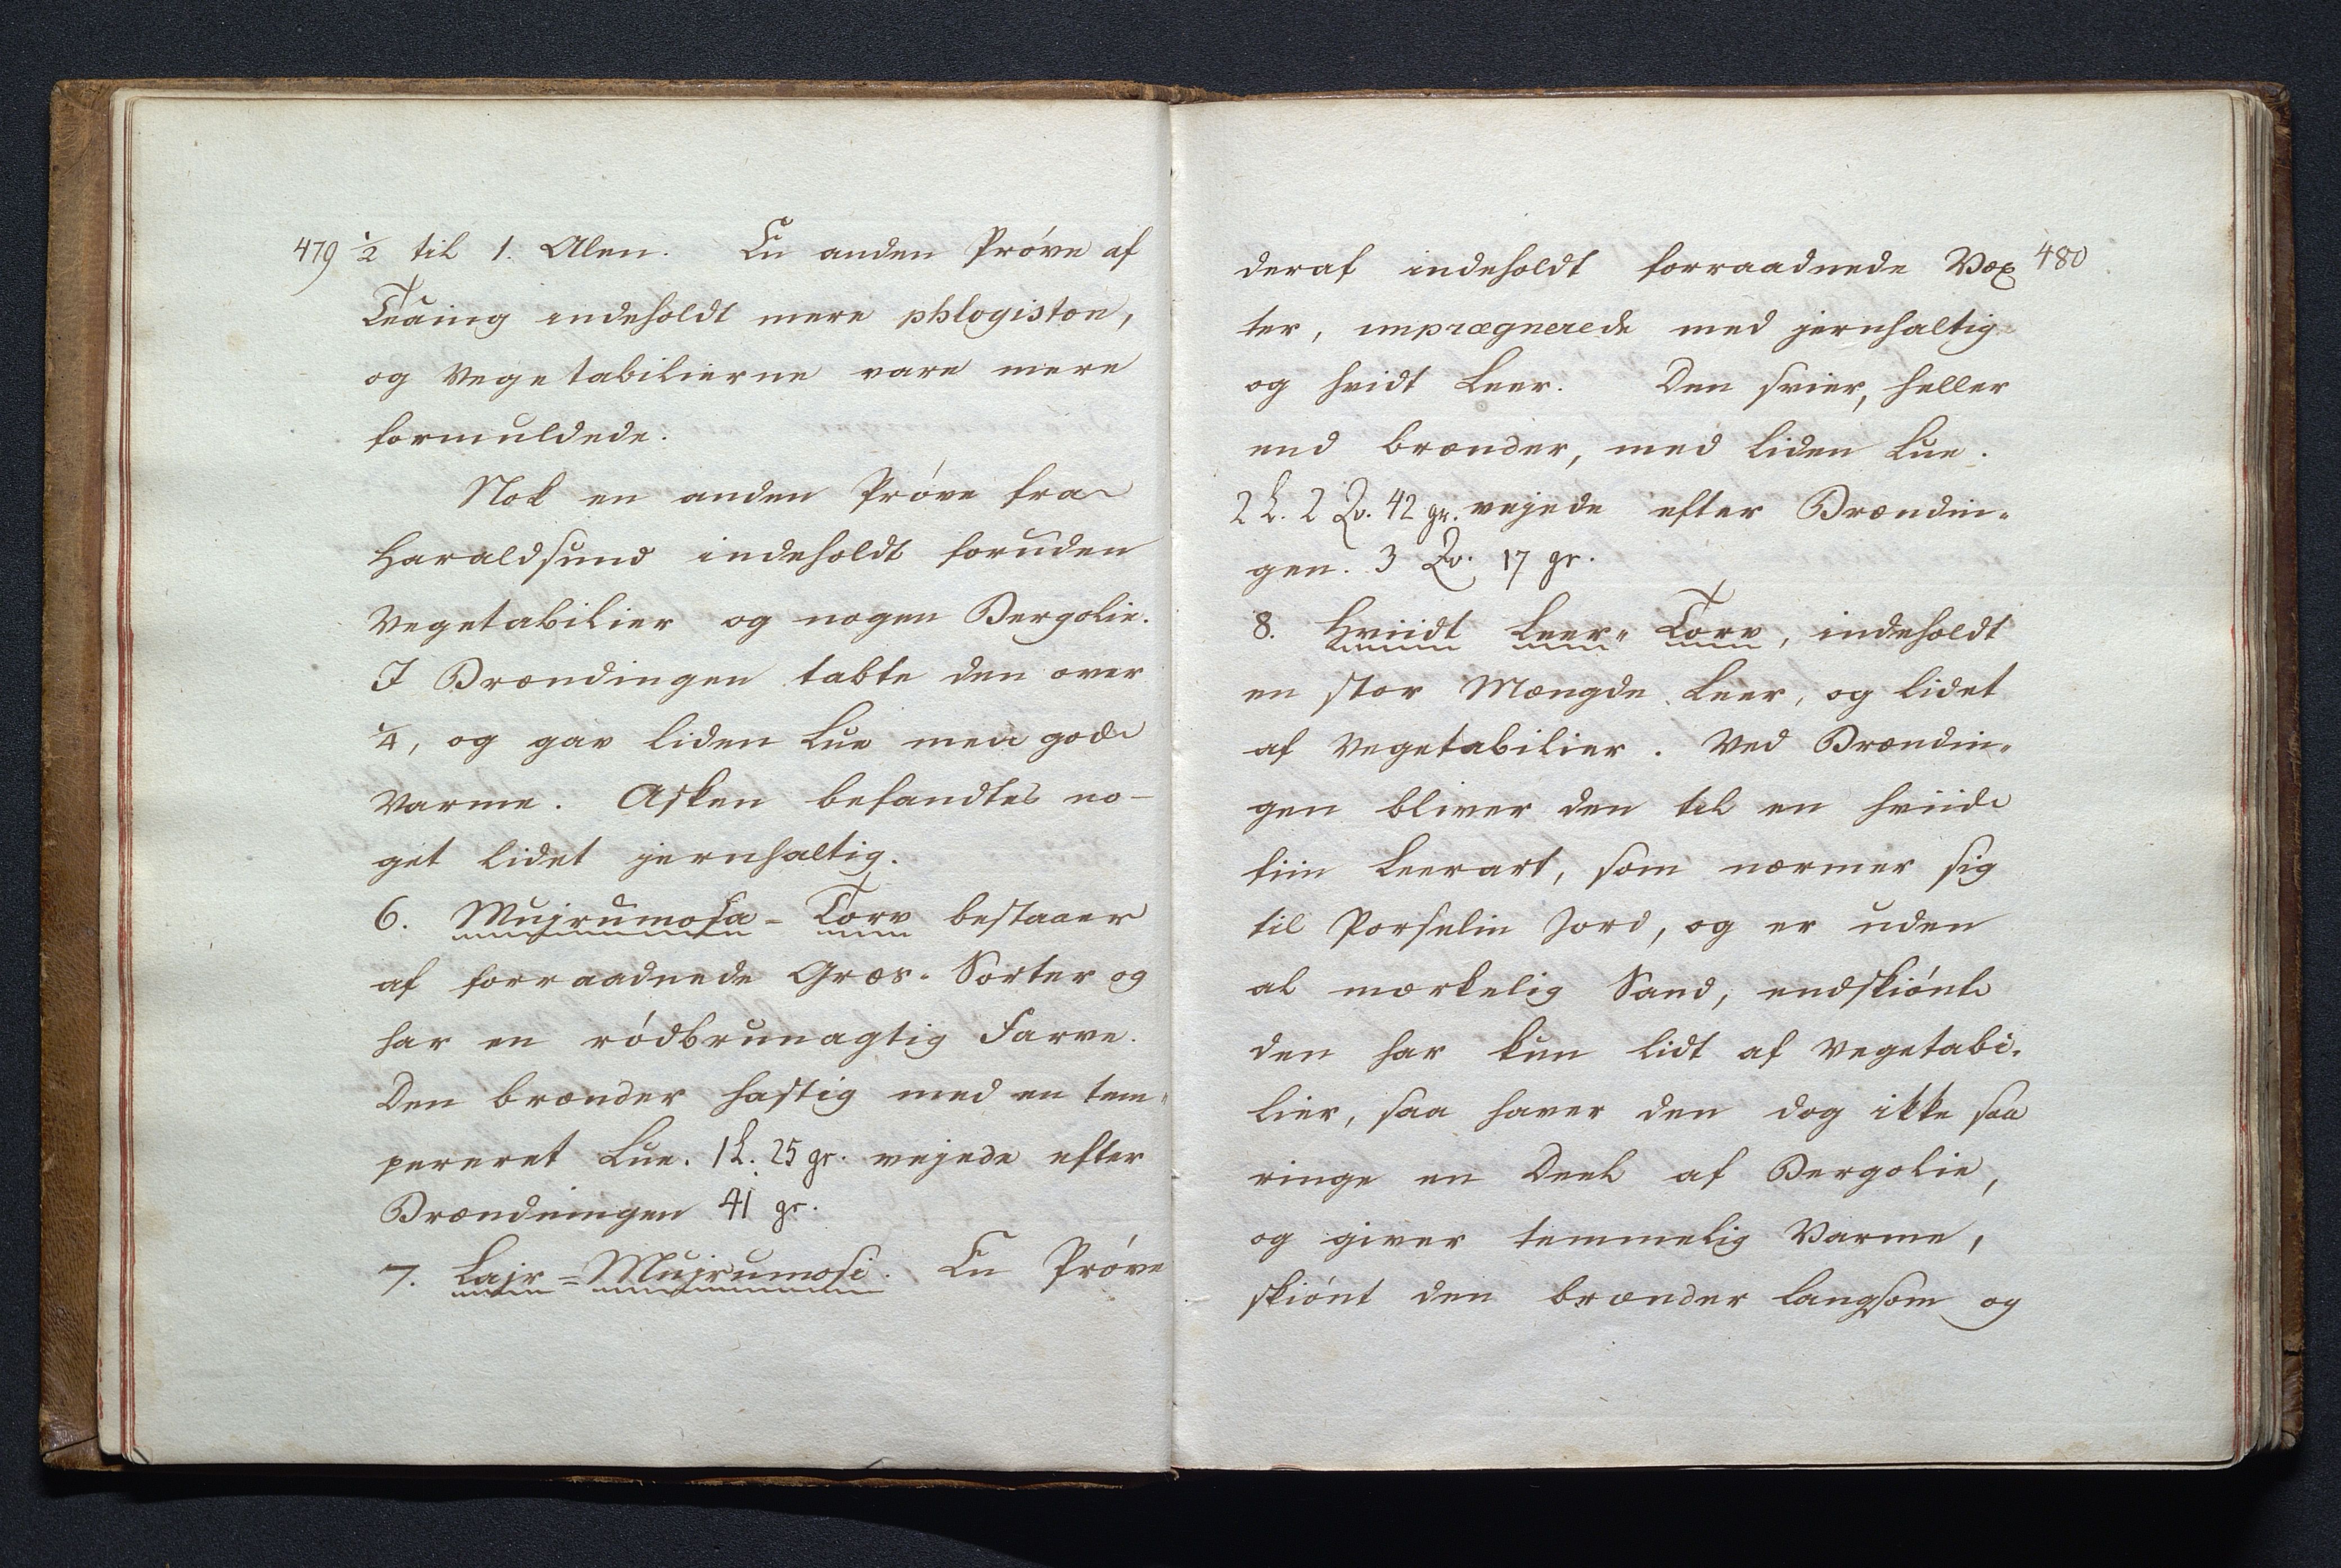 479 ½ til 1. Alen. En anden Prøve af
Teaing indeholdt mere phlogiston,
og Vegetabilierne vare mere
formuldede.
Nok en anden Prøve fra
Haraldsund indeholdt foruden
Vegetabilier og nogen Bergolie.
I Brændingen tabte den over
¼, og gav liden Lue men god
Varme. Asken befandtes no-
get lidet jernhaltig.
6. Mujrumosa- Torv bestaaer
af forraadnede Græs- Sorter og
har en rødbrunagtig Farve.
Den brænder hastig med en tem-
pereret Lue. 1 L. 25 gr. vejede efter
Brændningen 41 gr.
7. Lajr=Mujrumosi. En Prøve
480
deraf indeholdt forraadnede Væx
ter, imprægnerede med jernhaltig
og hvidt Leer. Den svier, heller
end brænder, med liden Lue.
2 L. 2 Qv. 42 gr. vejede efter Brændin-
gen. 3 Qv. 17 gr.
8. Hviidt Leer- Torv, indeholdt
en stor Mængde Leer, og lidet
af Vegetabilier. Ved Brændin-
gen bliver den til en hviid
fiin Leerart, som nærmer sig
til Porselin Jord, og er uden
al mærkelig Sand, endskiønt
den har kun lidt af Vegetabi-
lier, saa haver den dog ikke saa
ringe en Deel af Bergolie,
og giver temmelig Varme,
skiønt den brænder langsom og